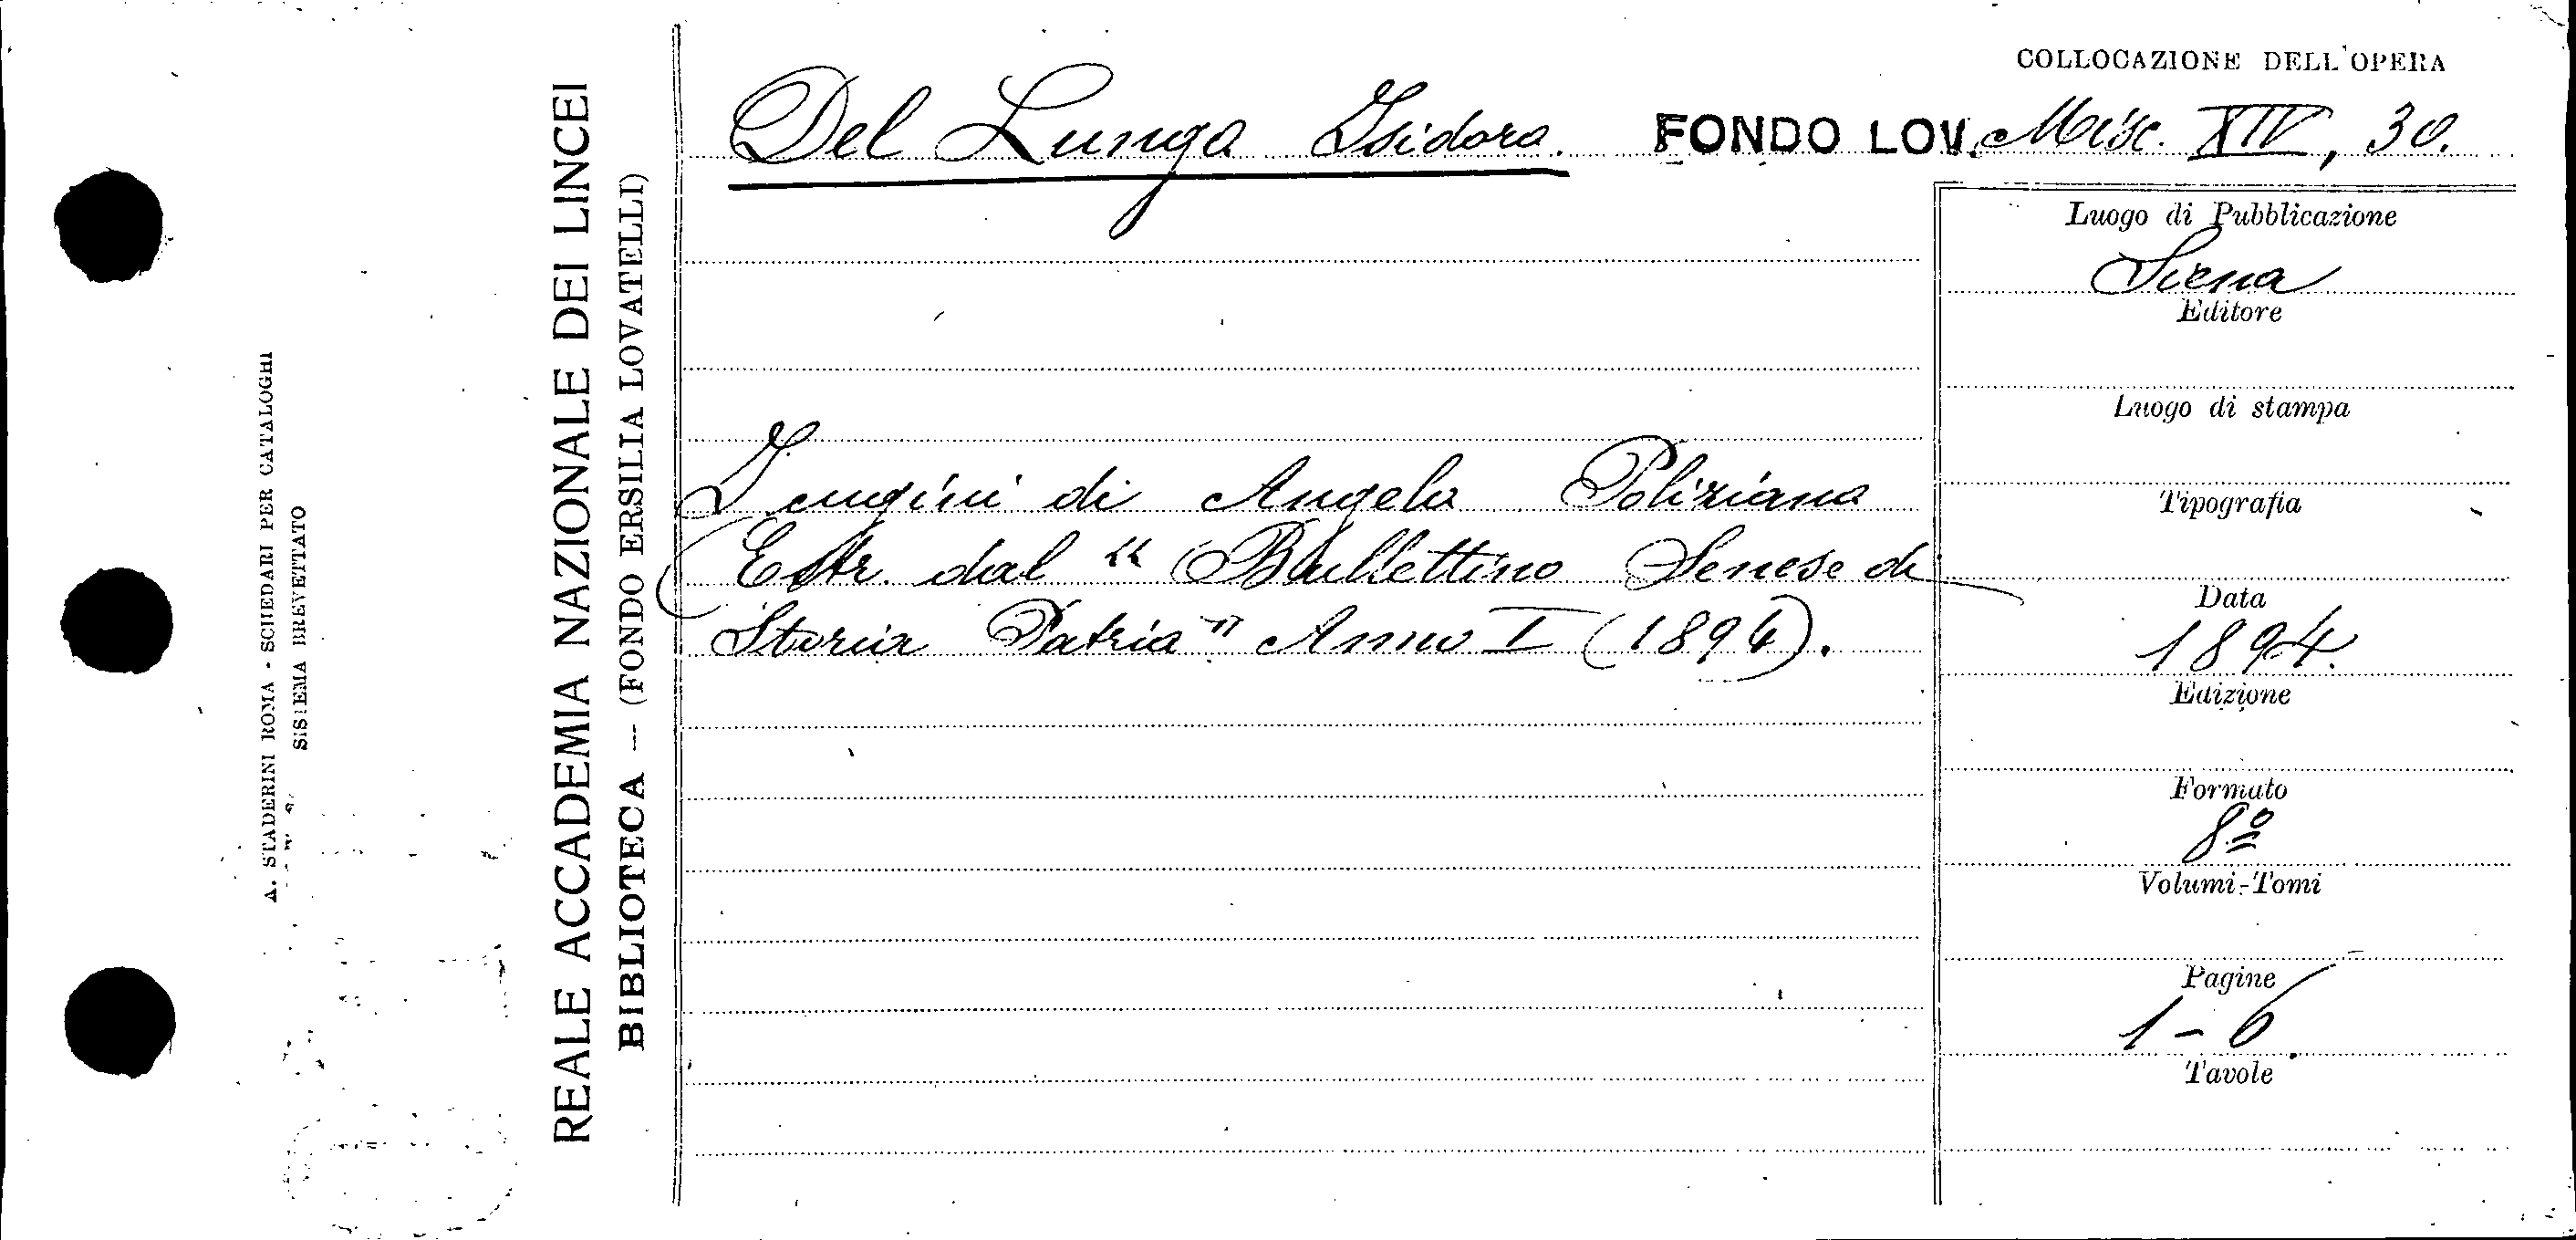 COLLOCAZIONE DELL'OPERA
Del Lungo Isidoro. FONDO LOV. Misc. XIV, 30.
I cugini di Angelo Poliziano
(Estr. dal “Bullettino Senese di
Storia Patria” Anno I (1894).
Luogo di Pubblicazione
Siena
Editore
Luogo di stampa
Tipografia
Data
1894.
Edizione
Formato
8º
Volumi-Tomi
Pagine
1-6
Tavole
REALE ACCADEMIA NAZIONALE DEI LINCEI
BIBLIOTECA — (FONDO ERSILIA LOVATELLI)
A. STADERINI ROMA - SCHEDARI PER CATALOGHI
SISTEMA BREVETTATO